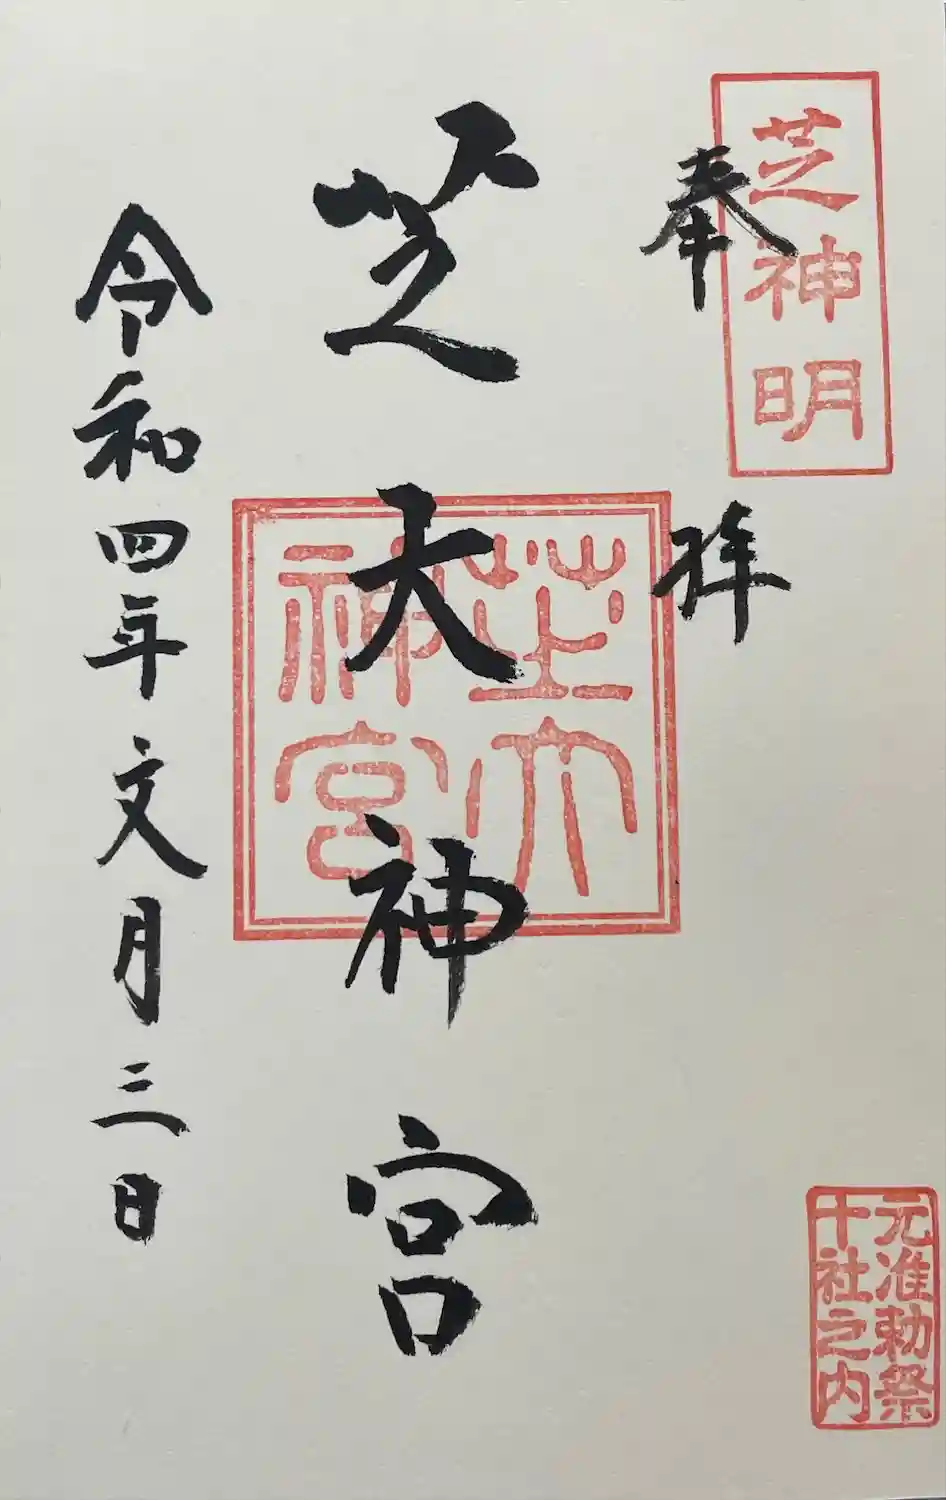 芝神明
奉拝
元准勅祭
十社之内
芝大神宮
芝大
神宮
令和四年文月三日